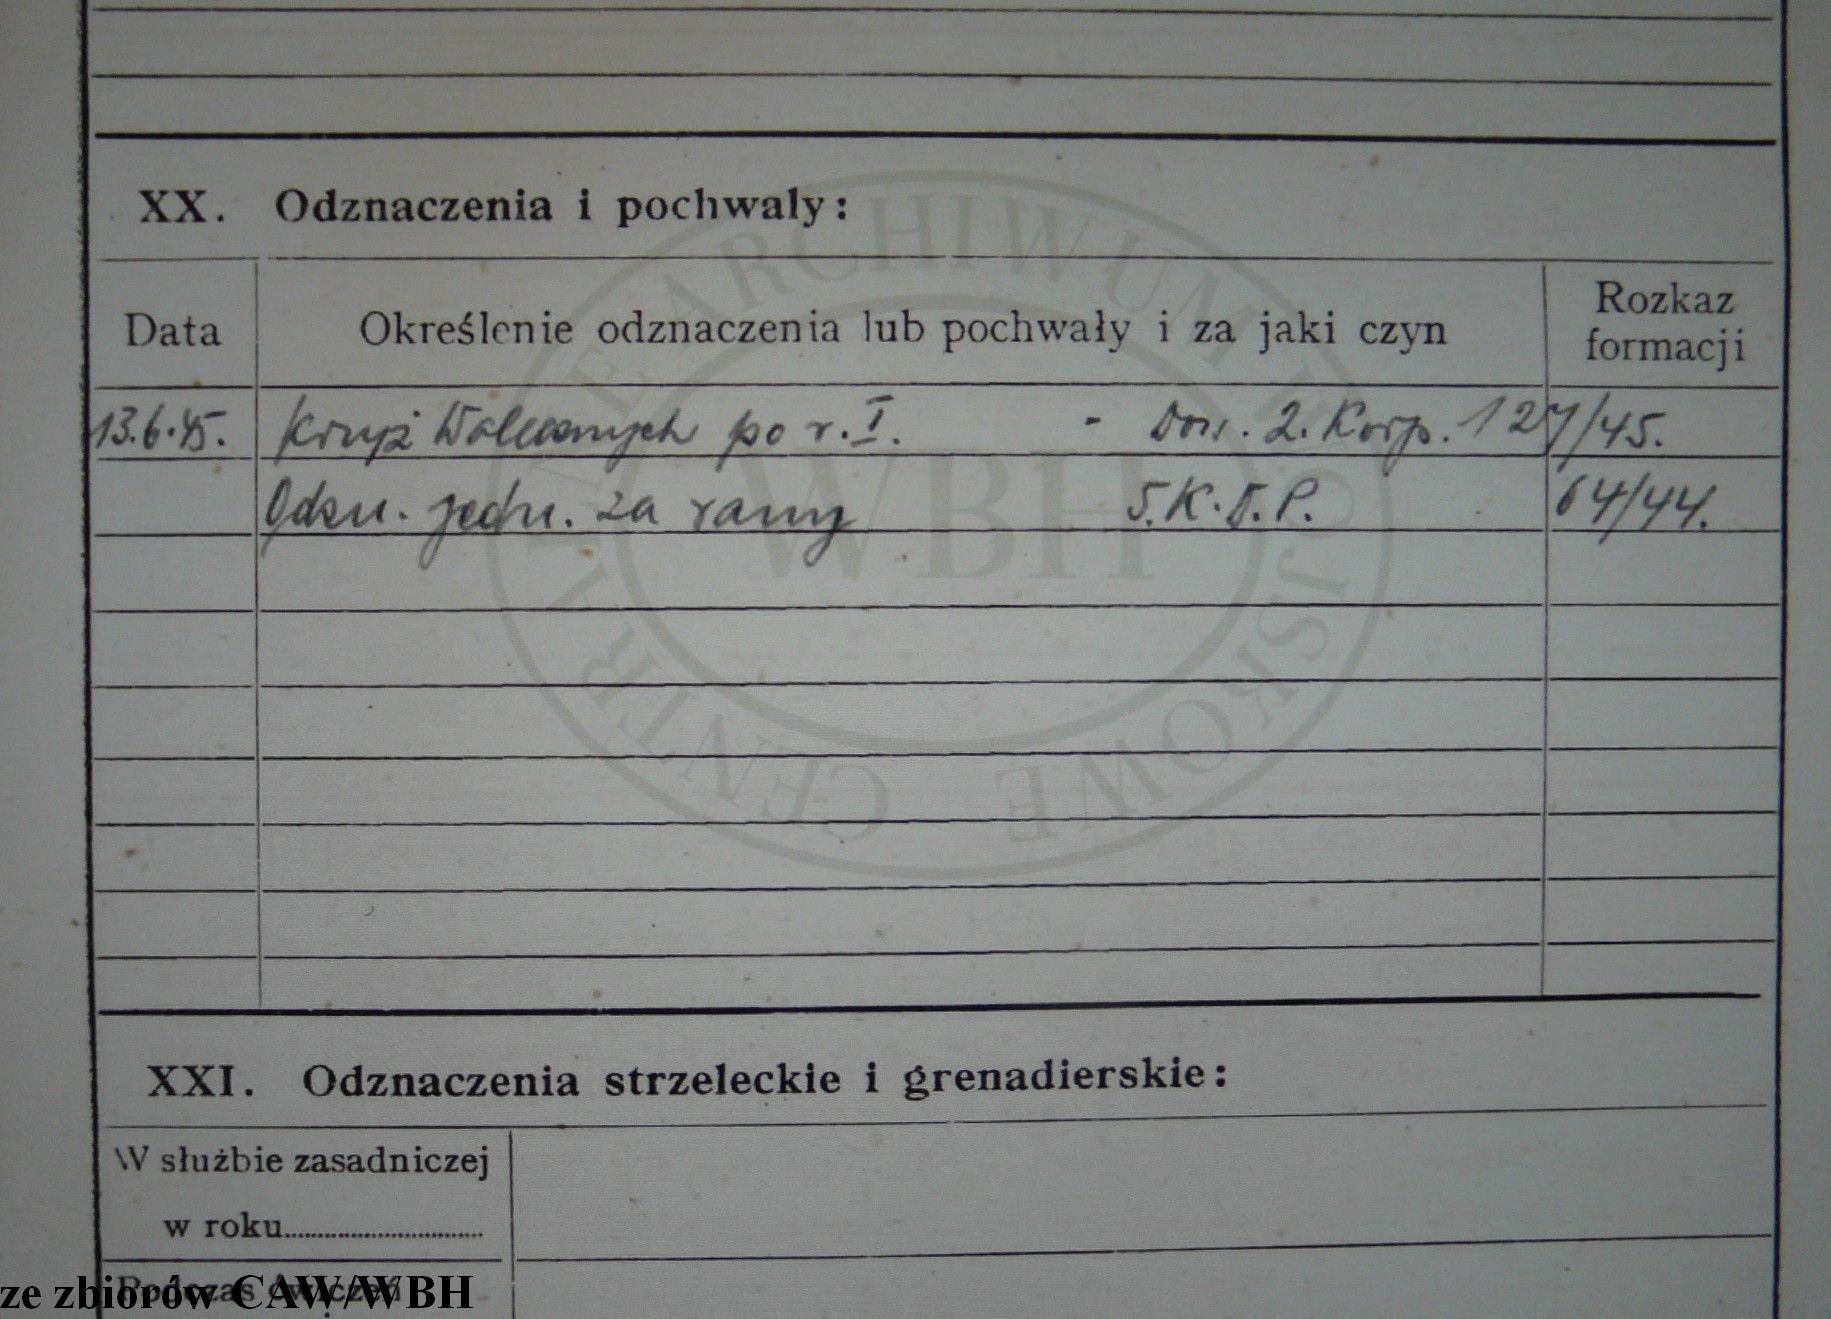 XX. Odznaczenia i pochwały:
Data
Określenie odznaczenia lub pochwały i za jaki czyn
Rozkaz
formacji
13.6.45. Krzyż Walecznych po r. I. - Dow. 2. Korp. 127/45.
Odzn. jedn. za rany 5.K.D.P. 64/44.
XXI. Odznaczenia strzeleckie i grenadierskie:
W służbie zasadniczej
w roku
Podczas ćwiczeń
ze zbiorów CAW/WBH
CENTRALNE ARCHIWUM WOJSKOWE
WBH